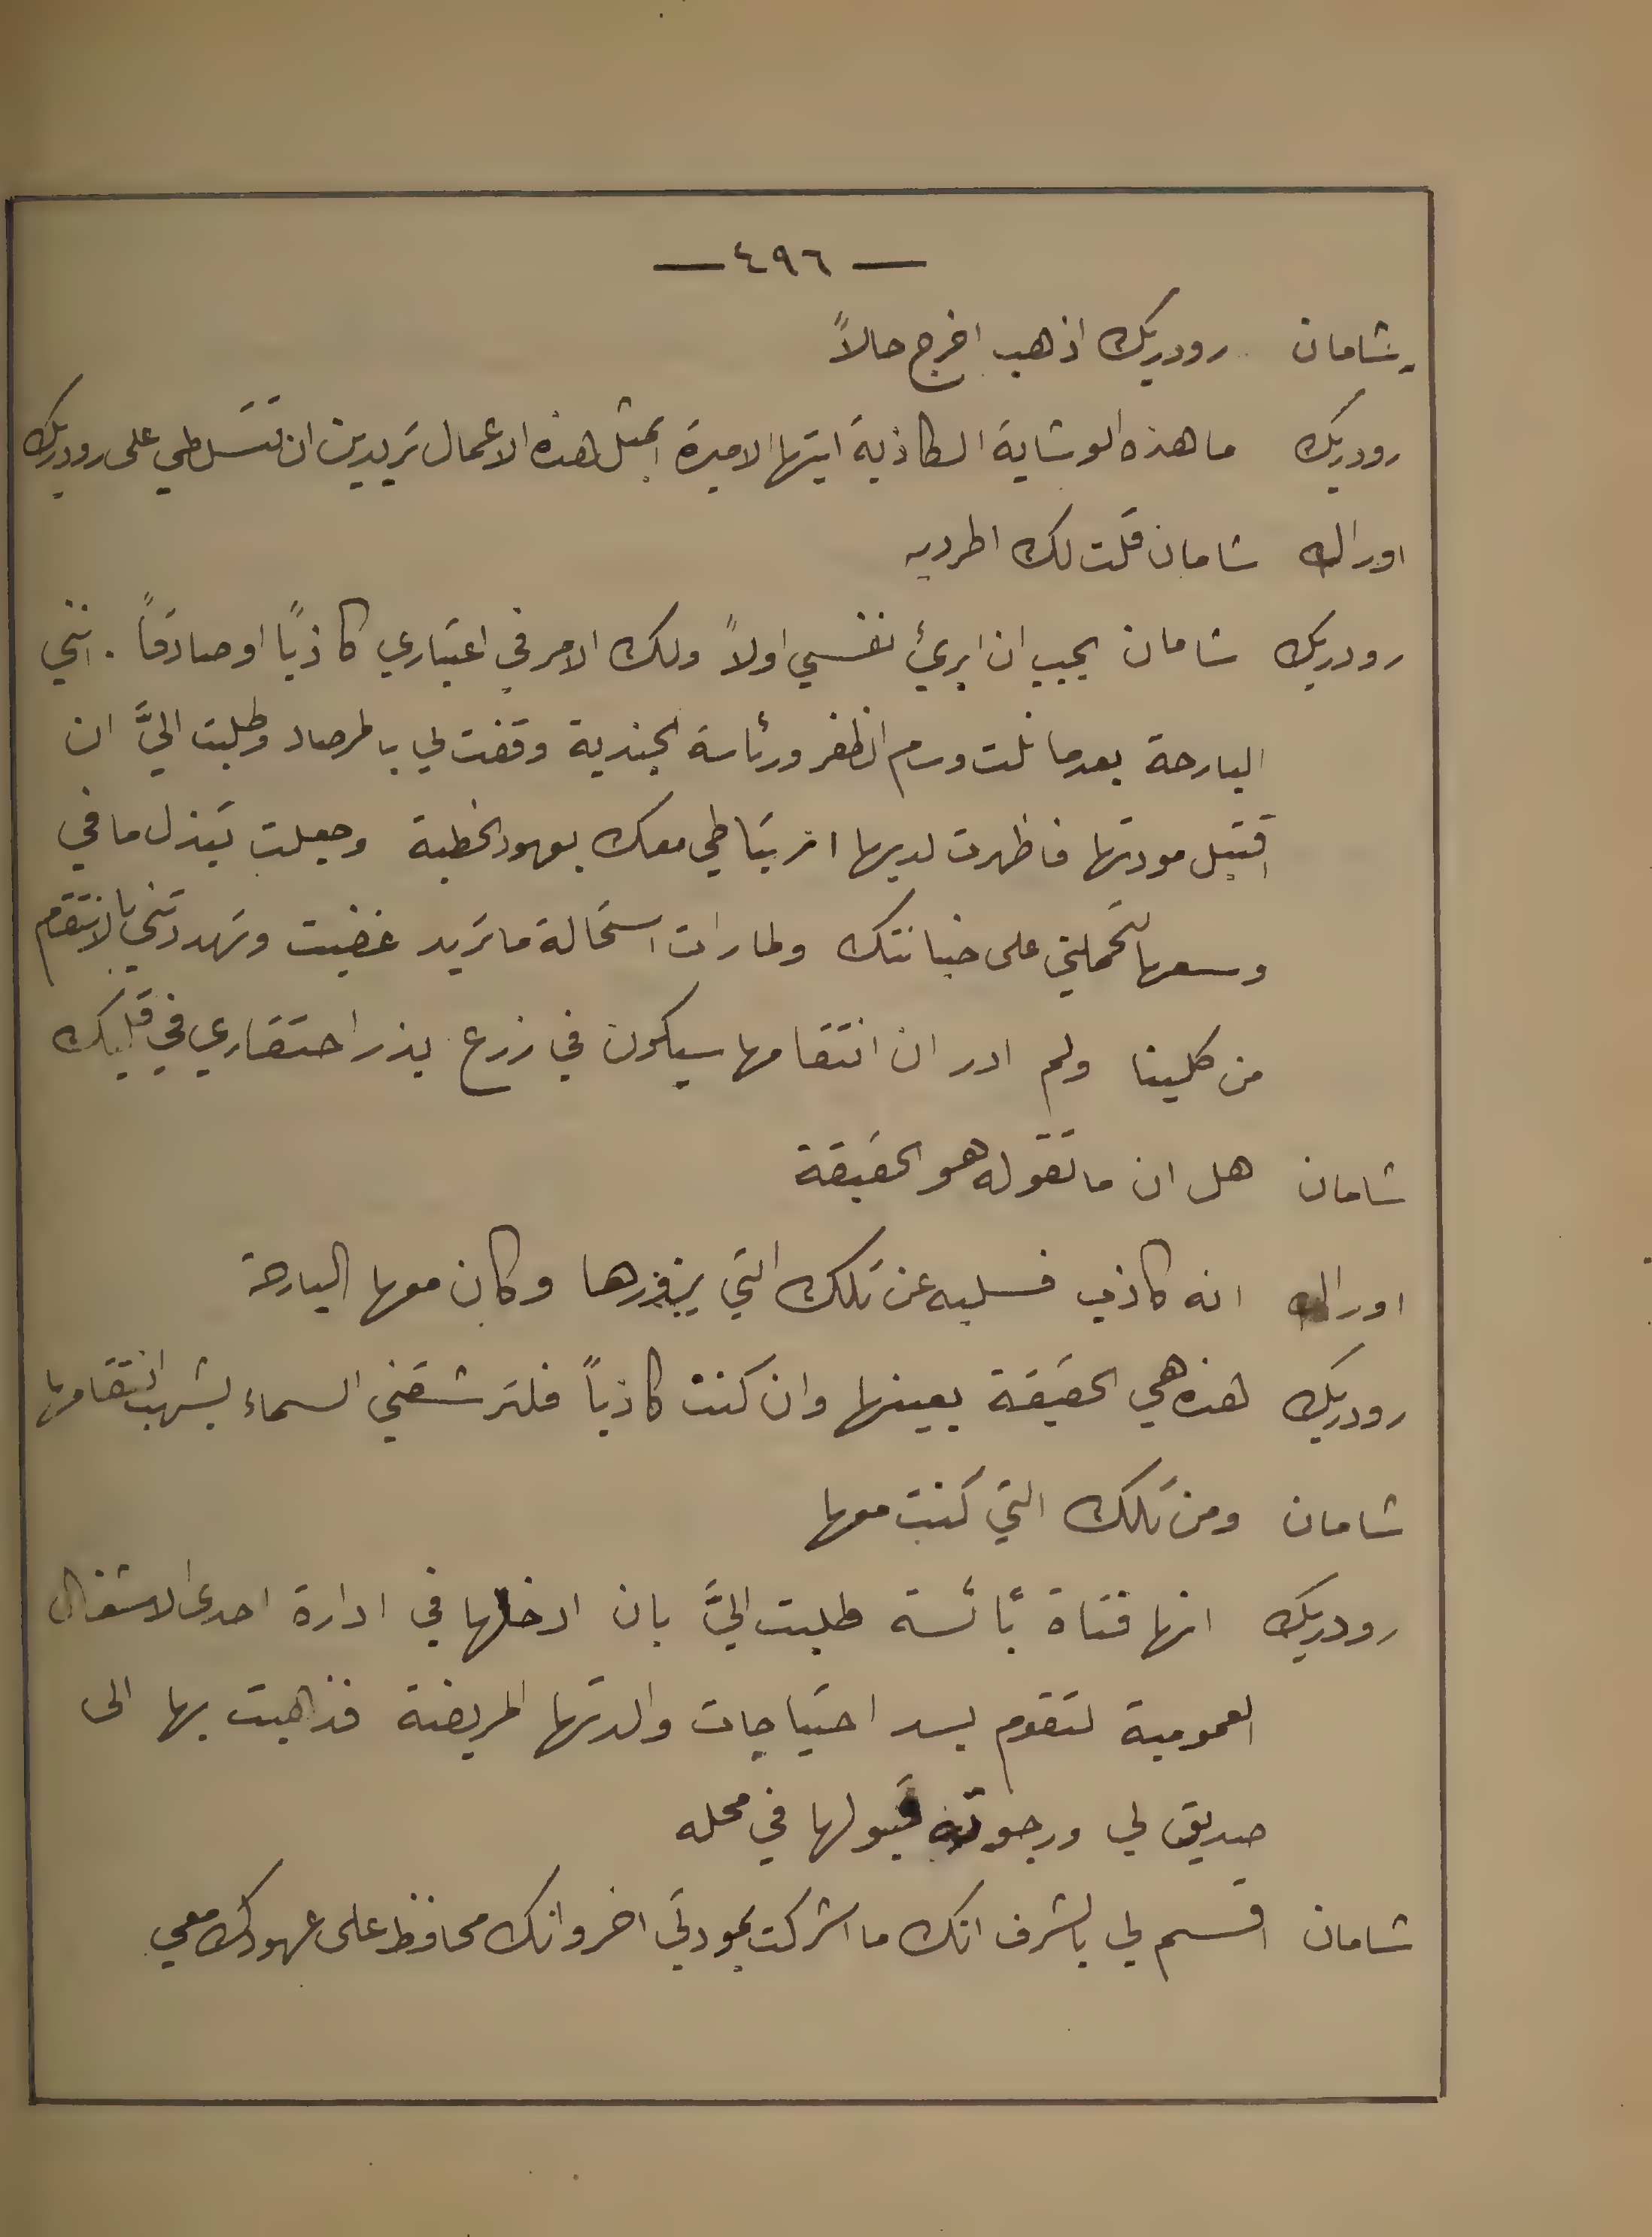 — ٤٩٦ —
شامان رودريك اذهب اخرج حالاً
رودريك ما هذه الوشاية الكاذبة ايتها الاميرة أبمثل هذه الاعمال تريدين ان تتسلطي على رودريك
اورالك شامان قلت لك اطرديه
رودريك شامان يجب ان ابريُ نفسي اولاً ولك الامر في اعتباري كاذبًا او صادقاً . انني
البارحة بعدما نلت وسام الظفر ورئاسة الجندية وقفت لي بالمرصاد وطلبت اليَّ ان
اقتبل مودتها فاظهرت لديها ارتباطي معك بعهود الخطبة وجعلت تبذل ما في
وسعها لتحملني على خيانتك ولما رات استحالة ما تريد غضبت وتهددتني بالانتقام
من كلينا ولم ادر ان انتقامها سيكون في زرع بذر احتقاري في قلبك
شامان هل ان ما تقوله هو الحقيقة
اورالك انه كاذب فسليه عن تلك التي يزورها وكان معها البارحة
رودريك هذه هي الحقيقة بعينها وان كنت كاذباً فلترشقني السماء بشهب انتقامها
شامان ومن تلك التي كنت معها
رودريك انها فتاة بٔائسة طلبت اليَّ بان ادخلها في ادارة احدى الاشغال
العمومية لتقوم بسد احتياجات والدتها المريضة فذهبت بها الى
صديق لي ورجوته قبولها في محله
شامان اقسم لي بالشرف انك ما اشركت بمودتي اخر وانك محافظ على عهودك معي